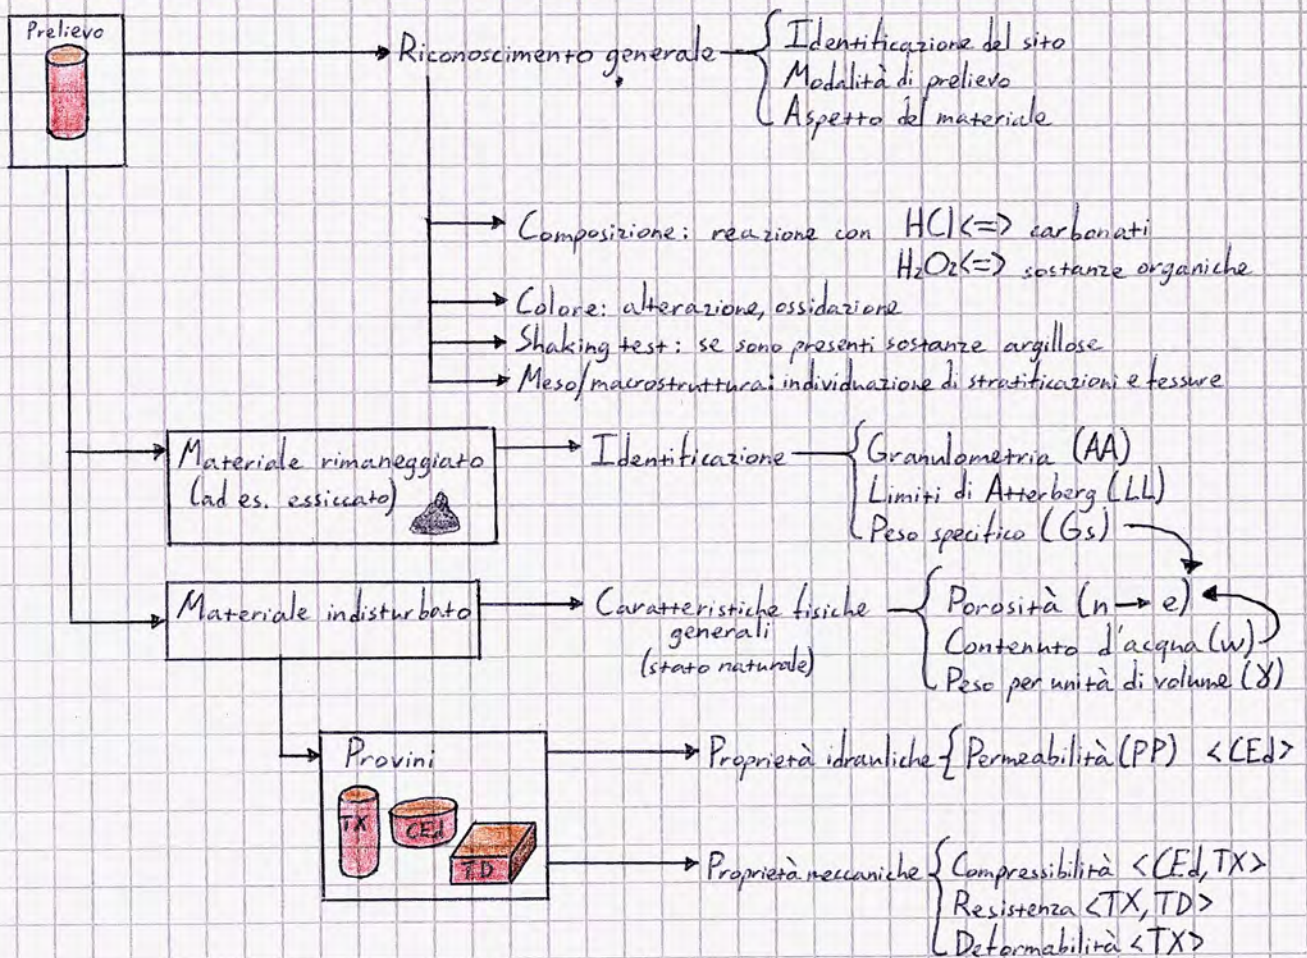 Prelievo
Riconoscimento generale
Identificazione del sito
Modalità di prelievo
Aspetto del materiale
Composizione: reazione con HCl <=> carbonati
H₂O₂ <=> sostanze organiche
Colore: alterazione, ossidazione
Shaking test: se sono presenti sostanze argillose
Meso/macrostruttura: individuazione di stratificazioni e tessure
Materiale rimaneggiato
(ad es. essiccato)
Identificazione
Granulometria (AA)
Limiti di Atterberg (LL)
Peso specifico (Gs)
Materiale indisturbato
Caratteristiche fisiche
generali
(stato naturale)
Porosità (n → e)
Contenuto d'acqua (w)
Peso per unità di volume (γ)
Provini
TX
CEd
TD
Proprietà idrauliche { Permeabilità (PP) <CEd>
Proprietà meccaniche
Compressibilità <CEd, TX>
Resistenza <TX, TD>
Deformabilità <TX>